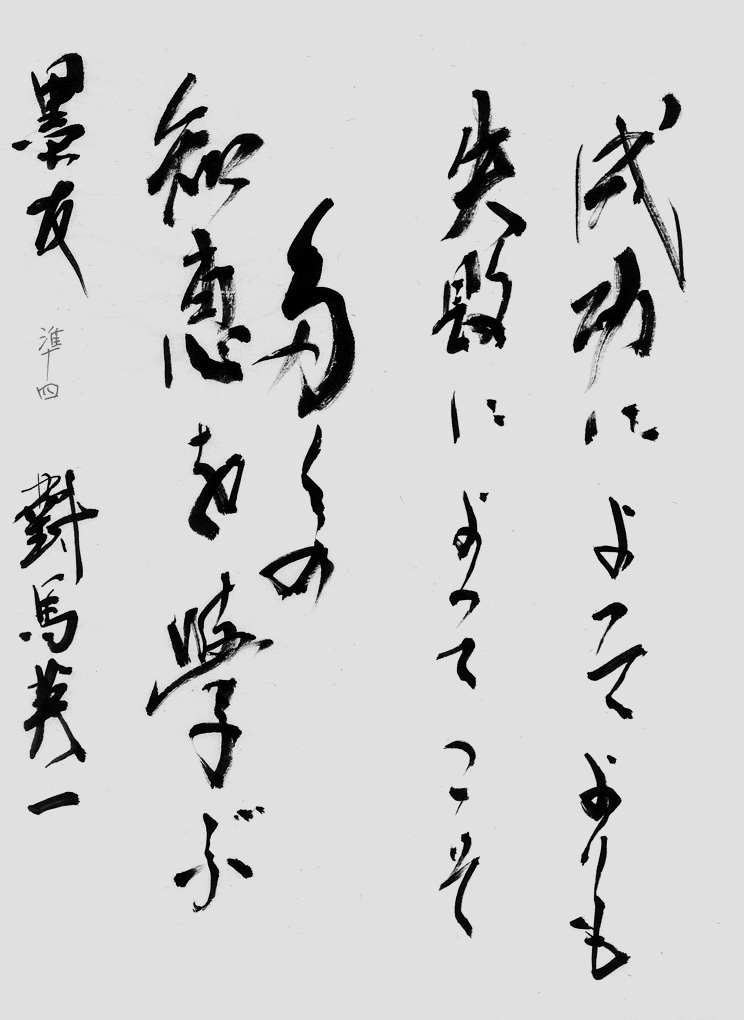 成功によってよりも
失敗によってこそ
多くの
知恵を学ぶ
墨友 準四 對馬英一